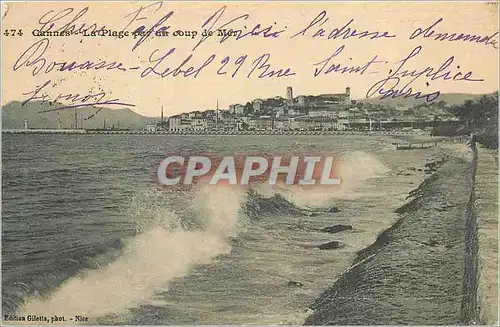 Chère Fa Voici l'adresse demandée
474 Cannes - La Plage par un coup de Mer
Bouasse-Lebel 29 Rue Saint-Sulpice
Paris
CPARPHIL
Edition Giletta, phot. - Nice